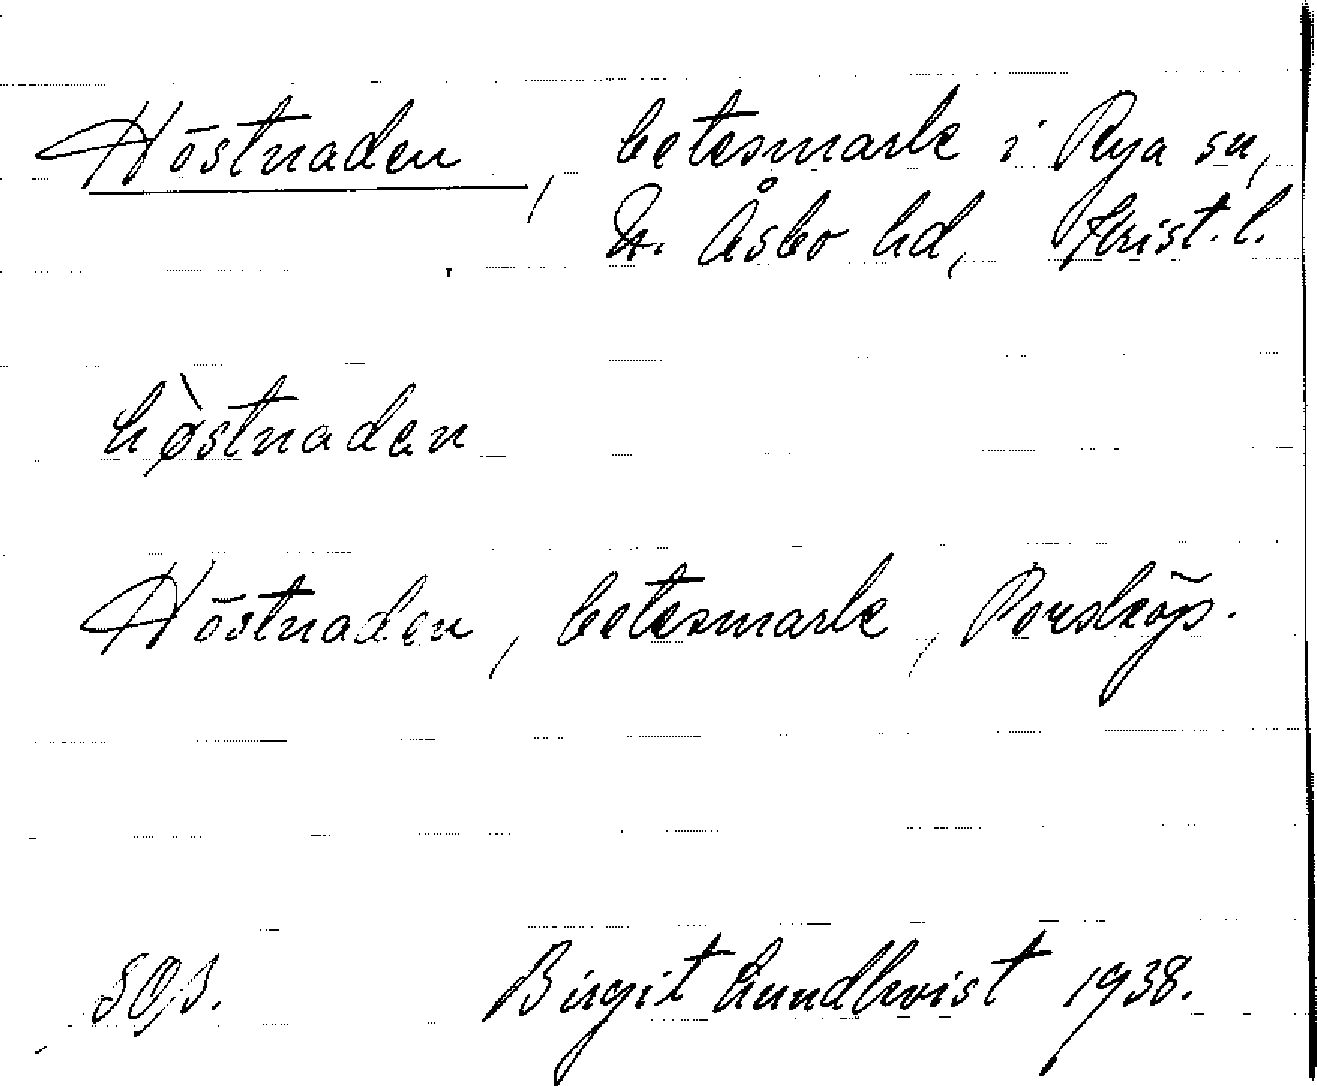 Höstnaden, betesmark i Rya sn,
N. Åsbo hd, Krist. l.
hø̀stnadən
Höstnaden, betesmark, Porsköp.
Birgit Lundkvist 1938.